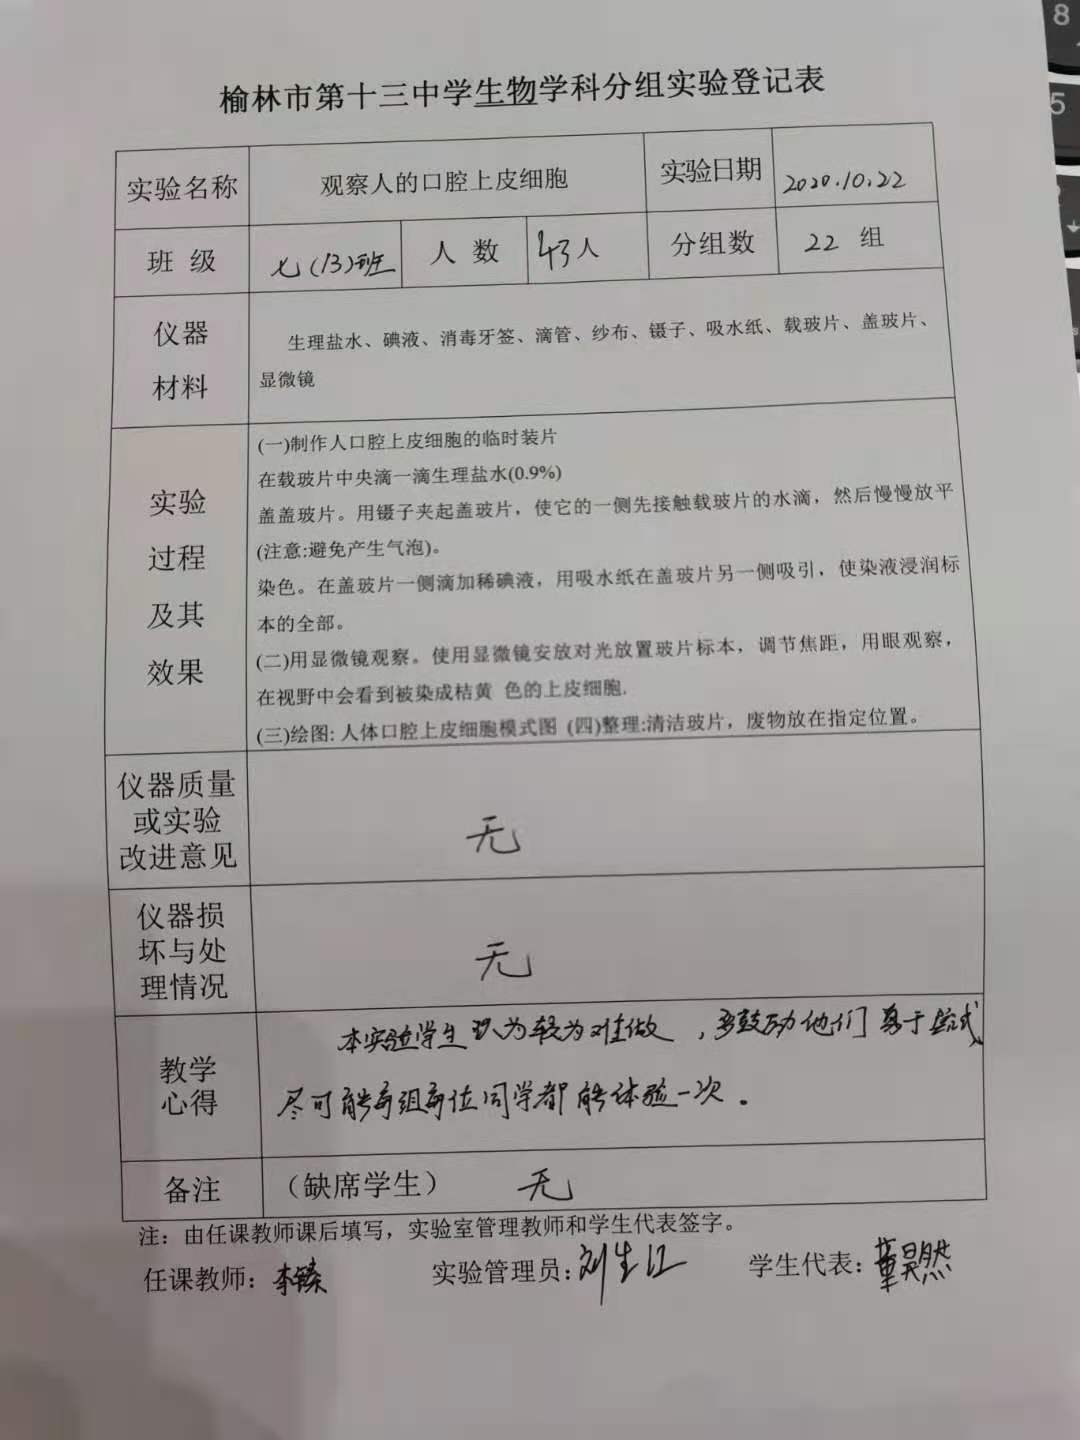 榆林市第十三中学生物学科分组实验登记表
实验名称 观察人的口腔上皮细胞 实验日期 2020.10.22
班 级 七(13)班 人 数 43人 分组数 22 组
仪器
材料
生理盐水、碘液、消毒牙签、滴管、纱布、镊子、吸水纸、载玻片、盖玻片、
显微镜
实验
过程
及其
效果
(一)制作人口腔上皮细胞的临时装片
在载玻片中央滴一滴生理盐水(0.9%)
盖盖玻片。用镊子夹起盖玻片，使它的一侧先接触载玻片的水滴，然后慢慢放平
(注意:避免产生气泡)。
染色。在盖玻片一侧滴加稀碘液，用吸水纸在盖玻片另一侧吸引，使染液浸润标
本的全部。
(二)用显微镜观察。使用显微镜安放对光放置玻片标本，调节焦距，用眼观察，
在视野中会看到被染成桔黄 色的上皮细胞.
(三)绘图: 人体口腔上皮细胞模式图 (四)整理:清洁玻片，废物放在指定位置。
仪器质量
或实验
改进意见
无
仪器损
坏与处
理情况
无
教学
心得
本实验学生认为较为难做，多鼓励他们勇于尝试
尽可能每组每位同学都能体验一次。
备注 （缺席学生） 无
注：由任课教师课后填写，实验室管理教师和学生代表签字。
任课教师：李臻 实验管理员：刘生江 学生代表：董昊然
8
5